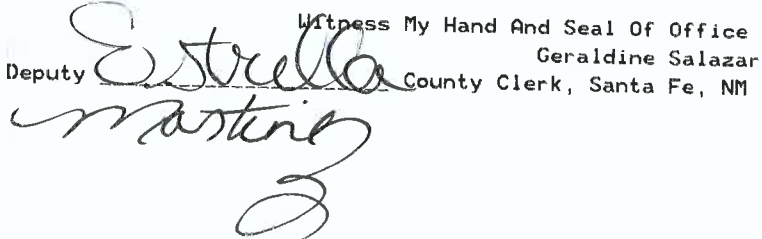 Witness My Hand And Seal Of Office
Geraldine Salazar
Deputy Estrella County Clerk, Santa Fe, NM
Martinez